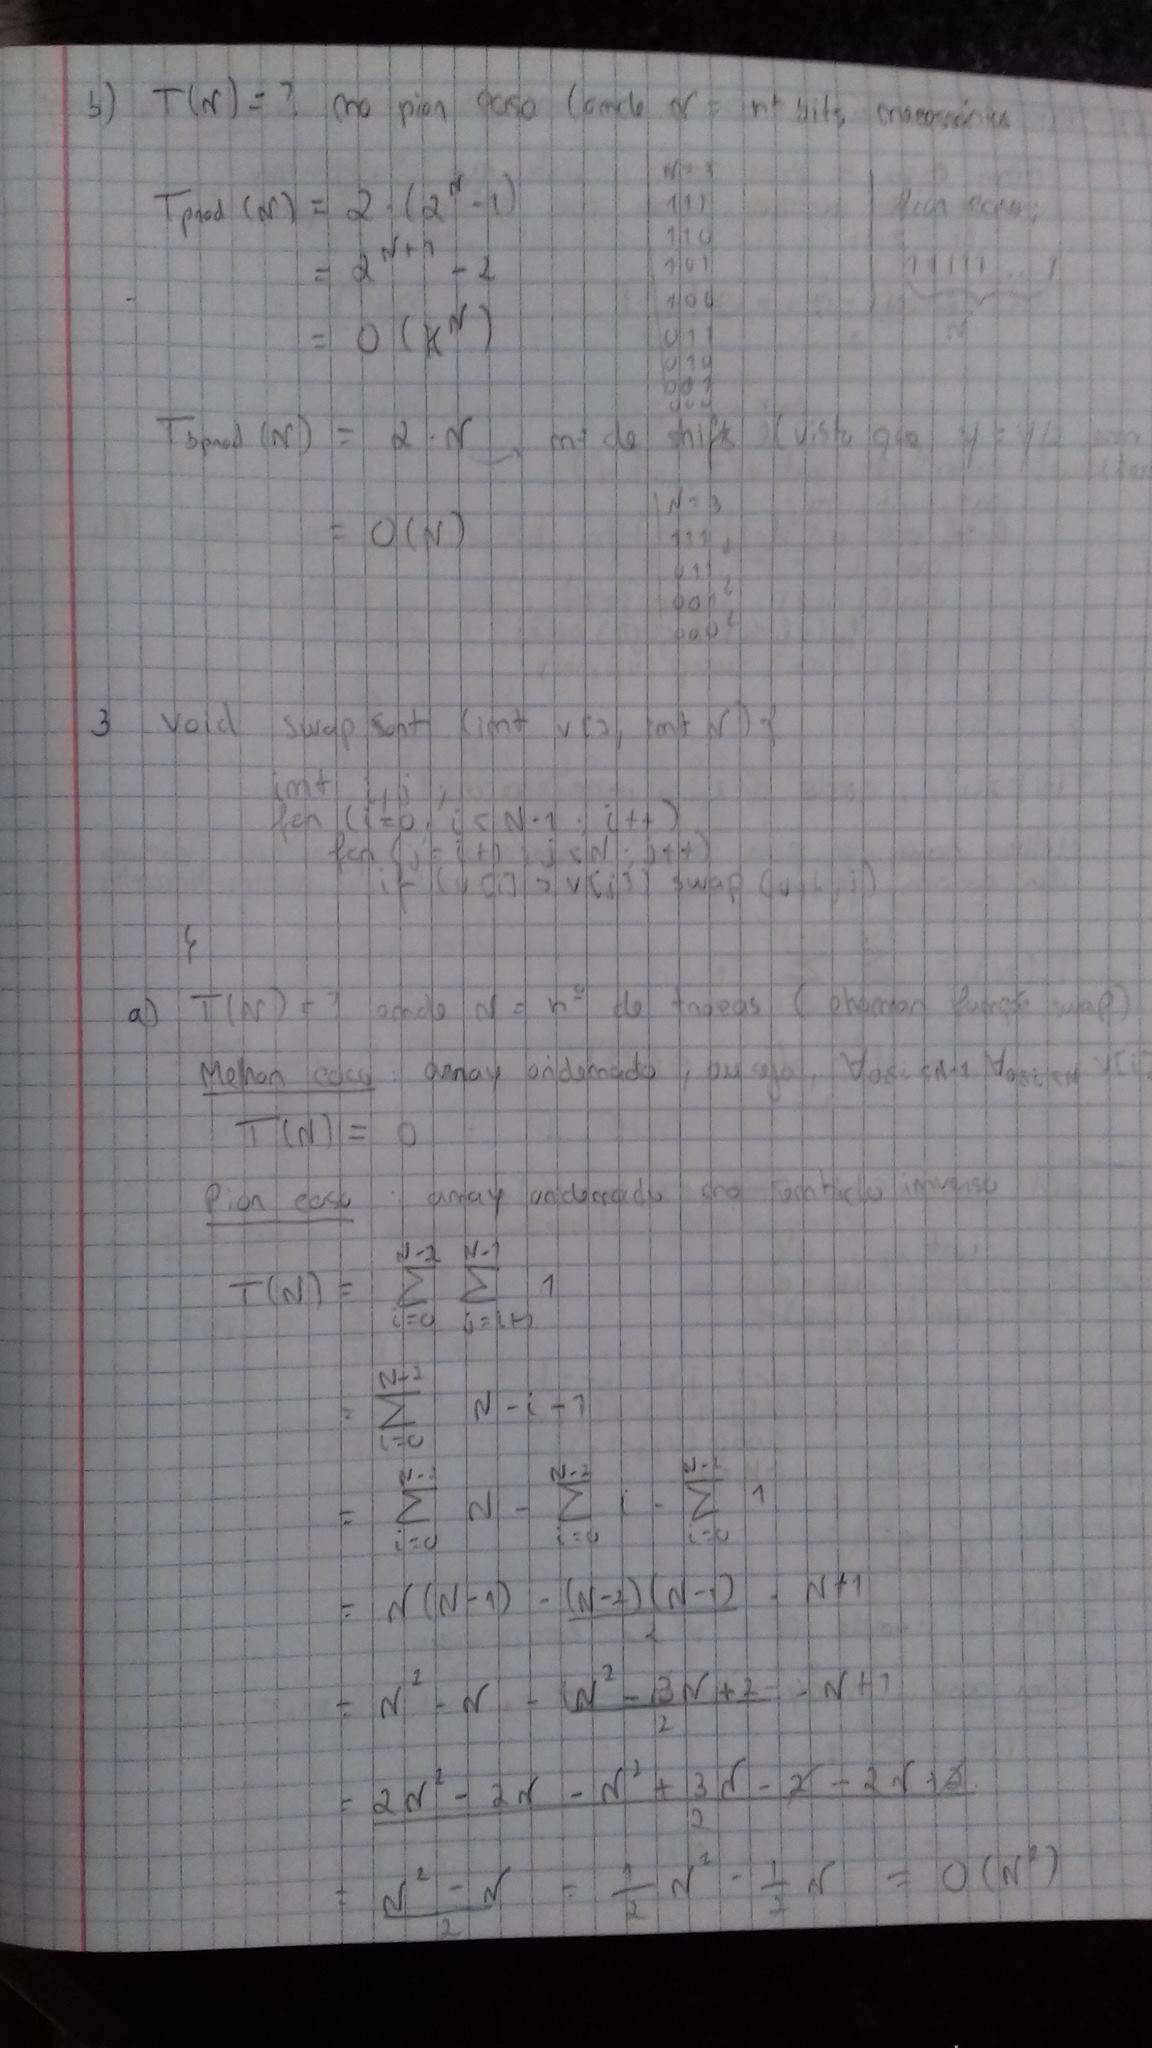 b) T(N) = ? no pior caso (onde N = nº bits necessários
Tprod (N) = 2 · (2^N - 1)
= 2^{N+1} - 2
= O(k^N)
N = 3
111
110
101
100
011
010
001
000
Pior caso:
11111...1
N
Tbprod (N) = 2 · N nº de shifts (visto que y = y/2
= O(N)
N = 3
111
011
001
000
3 void swapSort (int v[], int N) {
int i, j;
for (i=0; i < N-1; i++)
for (j = i+1; j < N; j++)
if (v[i] > v[j]) swap (v, i, j)
}
a) T(N) = ? onde N = nº de trocas (chamar função swap)
Melhor caso: array ordenado, ou seja,
T(N) = 0
Pior caso: array ordenado no sentido inverso
T(N) = ∑_{i=0}^{N-2} ∑_{j=i+1}^{N-1} 1
= ∑_{i=0}^{N-2} N - i - 1
= ∑_{i=0}^{N-2} N - ∑_{i=0}^{N-2} i - ∑_{i=0}^{N-2} 1
= N(N-1) - (N-2)(N-1)/2 - N+1
= N² - N - (N² - 3N + 2)/2 - N + 1
= (2N² - 2N - N² + 3N - 2 - 2N + 2)/2
= (N² - N)/2 = 1/2 N² - 1/2 N = O(N²)